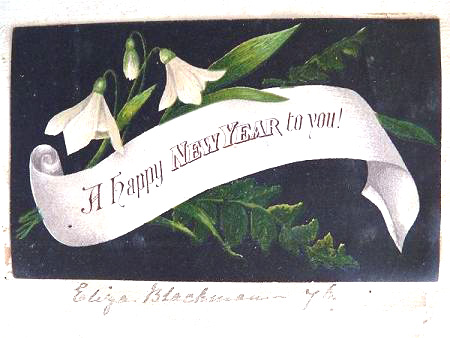 A happy NEW YEAR to you!
Eliza. Blackman